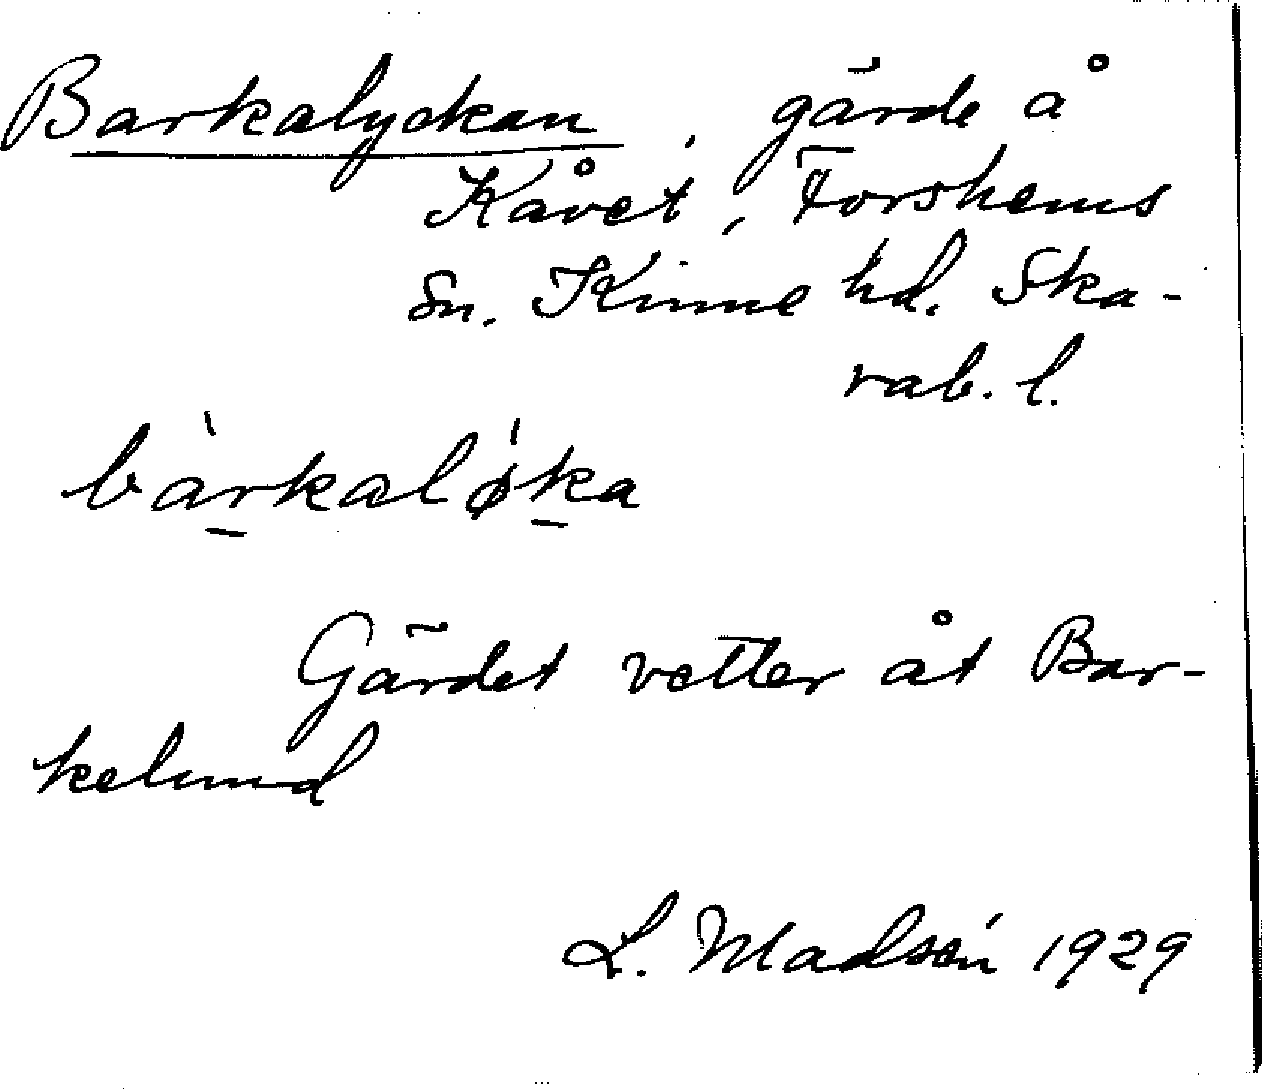 Barkalyckan, gärde å
Kåvet, Forshems
Sn. Kinne hd. Ska-
rab. l.
bàrkalǿka
Gärdet vetter åt Bar-
kelund
L. Madsén 1929